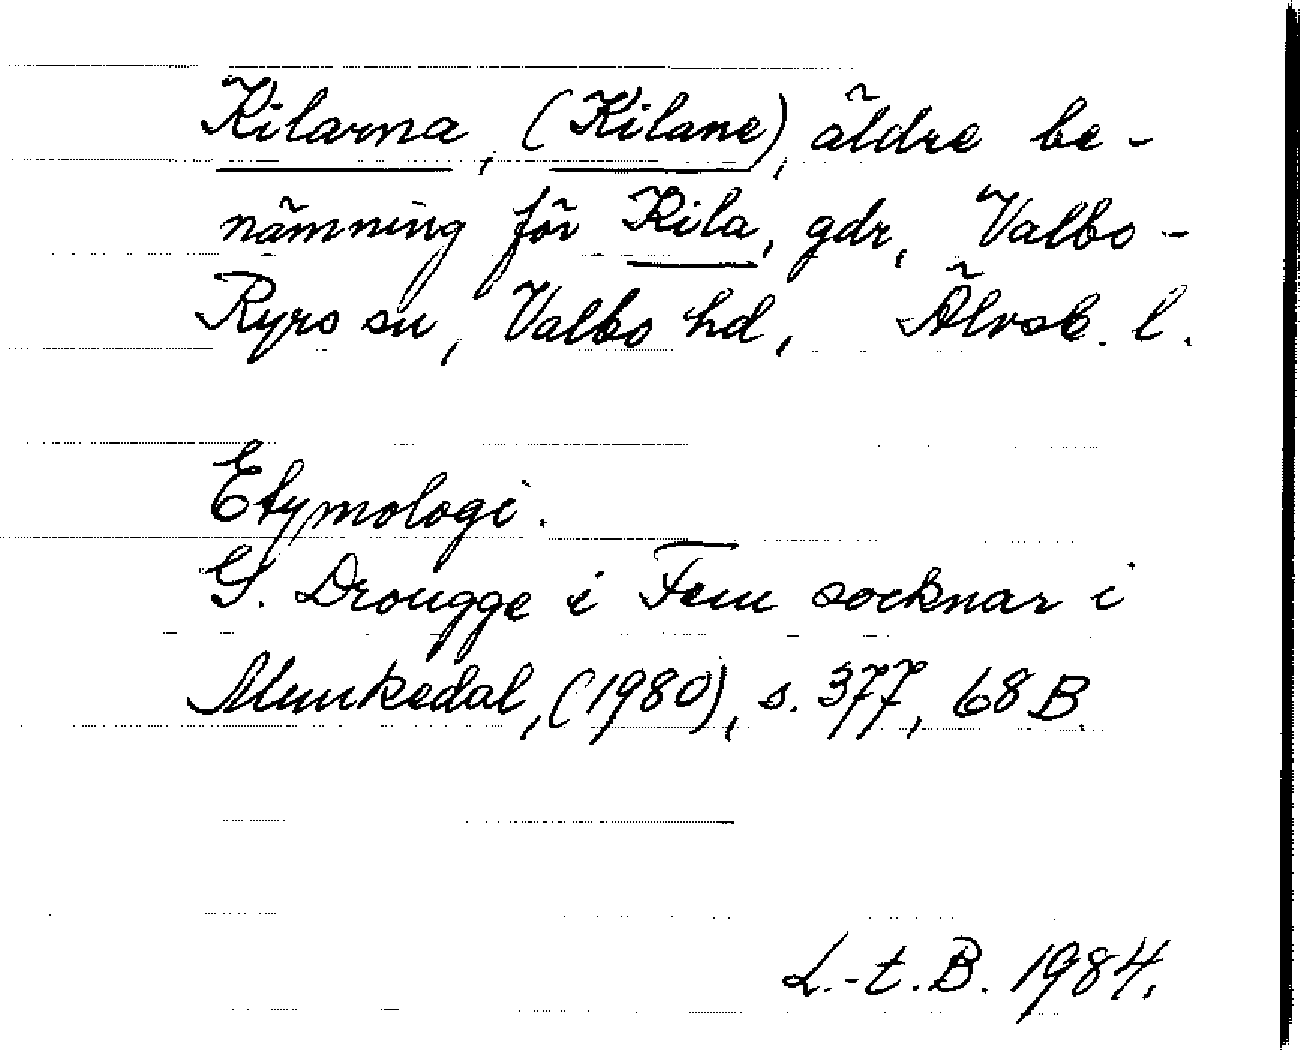 Kilarna, (Kilane), äldre be-
nämning för Kila, gdr, Valbo-
Ryrs sn, Valbo hd, Älvsb. l.
Etymologi.
G. Drougge i Fem socknar i
Munkedal, (1980), s. 377, 68 B.
L.-t. B. 1984.